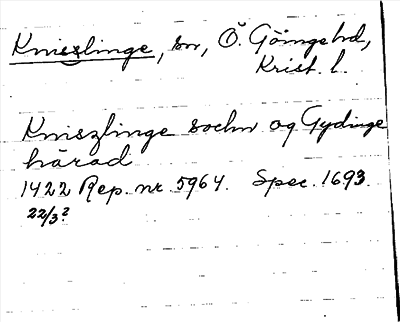 Knislinge, sn, Ö. Göinge hd,
Krist. l.
Kniszlinge sochn og Gydinge
härad
1422 Rep. nr. 5964. Spec. 1693.
22/3?